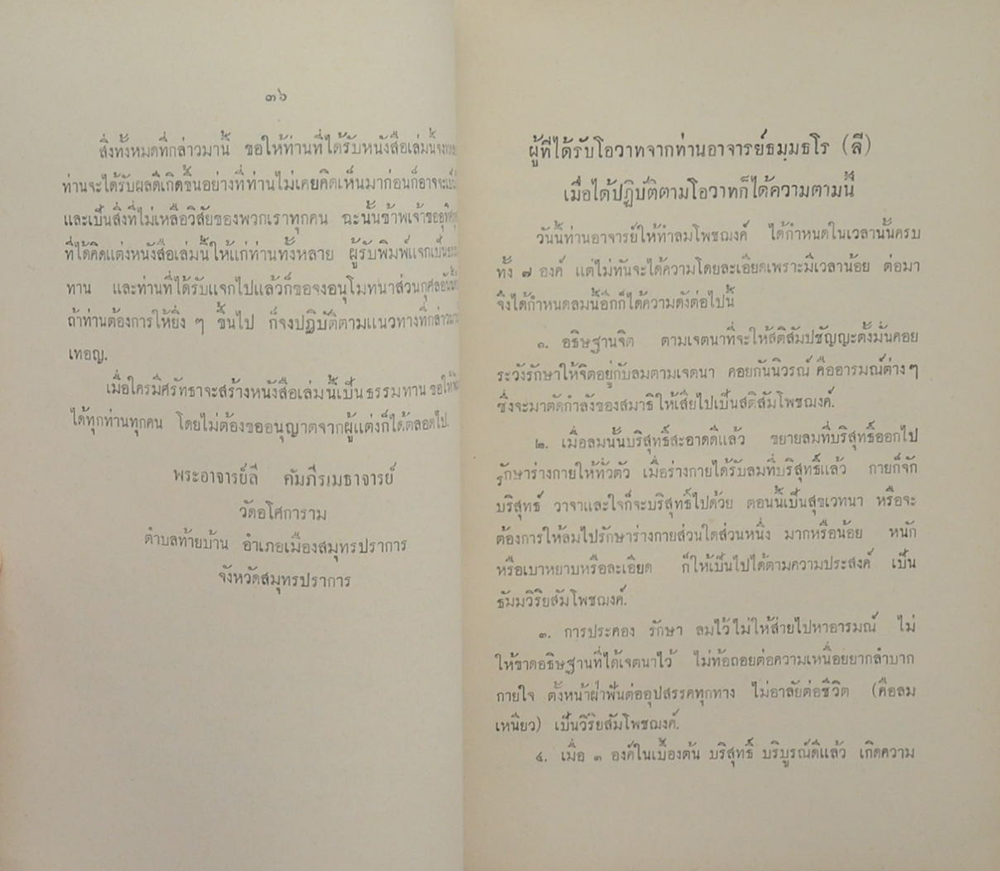 ๓๖
สิ่งทั้งหมดที่กล่าวมานี้ ขอให้ท่านที่ได้รับหนังสือเล่มนี้
ท่านจะได้รับผลดีเกิดขึ้นอย่างที่ท่านไม่เคยคิดเห็นมาก่อนก็อาจจะ
และเป็นสิ่งที่ไม่เหลือวิสัยของพวกเราทุกคน ฉะนั้นข้าพเจ้าขอ
ที่ได้คิดแต่งหนังสือเล่มนี้ให้แก่ท่านทั้งหลาย ผู้รับพิมพ์แจก
ทาน และท่านที่ได้รับแจกไปแล้วก็ขอจงอนุโมทนาส่วนกุศล
ถ้าท่านต้องการให้ยิ่ง ๆ ขึ้นไป ก็จงปฏิบัติตามแนวทางที่กล่าว
เทอญ.
เมื่อใครมีศรัทธาจะสร้างหนังสือเล่มนี้เป็นธรรมทาน ขอให้
ได้ทุกท่านทุกคน โดยไม่ต้องขออนุญาตจากผู้แต่งก็ได้ตลอดไป.
พระอาจารย์ลี คัมภีรเมธาจารย์
วัดอโศการาม
ตำบลท้ายบ้าน อำเภอเมืองสมุทรปราการ
จังหวัดสมุทรปราการ
ผู้ที่ได้รับโอวาทจากท่านอาจารย์ธมฺมธโร (ลี)
เมื่อได้ปฏิบัติตามโอวาทก็ได้ความตามนี้
วันนี้ท่านอาจารย์ให้ทำลมโพชฌงค์ ได้กำหนดในเวลานั้นครบ
ทั้ง ๗ องค์ แต่ไม่ทันจะได้ความโดยละเอียดเพราะมีเวลาน้อย ต่อมา
จึงได้กำหนดลมนี้อีกก็ได้ความดังต่อไปนี้
๑. อธิษฐานจิต ตามเจตนาที่จะให้สติสัมปชัญญะตั้งมั่นคอย
ระวังรักษาให้จิตอยู่กับลมตามเจตนา คอยกันนิวรณ์ คืออารมณ์ต่างๆ
ซึ่งจะมาตัดกำลังของสมาธิ ให้เสียไปเป็นสติสัมโพชฌงค์.
๒. เมื่อลมนั้นบริสุทธิ์สะอาดดีแล้ว ขยายลมที่บริสุทธิ์ออกไป
รักษาร่างกายให้ทั่วตัว เมื่อร่างกายได้รับลมที่บริสุทธิ์แล้ว กายก็จัก
บริสุทธิ์ วาจาและใจก็จะบริสุทธิ์ไปด้วย ตอนนี้เป็นสุขเวทนา หรือจะ
ต้องการให้ลมไปรักษาร่างกายส่วนใดส่วนหนึ่ง มากหรือน้อย หนัก
หรือเบาหยาบหรือละเอียด ก็ให้เป็นไปได้ตามความประสงค์ เป็น
ธัมมวิริยสัมโพชฌงค์.
๓. การประคอง รักษา ลมไว้ไม่ให้ส่ายไปหาอารมณ์ ไม่
ให้ขาดอธิษฐานที่ได้เจตนาไว้ ไม่ท้อถอยต่อความเหนื่อยยากลำบาก
กายใจ ตั้งหน้าฝ่าฟันต่ออุปสรรคทุกทาง ไม่อาลัยต่อชีวิต (คือลม
เหนียว) เป็นวิริยสัมโพชฌงค์.
๔. เมื่อ ๓ องค์ในเบื้องต้น บริสุทธิ์ บริบูรณ์ดีแล้ว เกิดความ